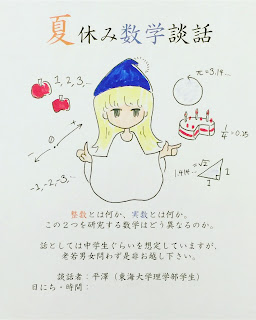 夏休み数学談話
1, 2, 3, ...
π=3.14...
1/4=0.25
+
-
-1, -2, -3, ...
1.414...=√2
1
1
整数とは何か、実数とは何か。
この２つを研究する数学はどう異なるのか。
話としては中学生ぐらいを想定していますが、
老若男女問わず是非お越し下さい。
談話者：平澤（東海大学理学部学生）
日にち・時間：